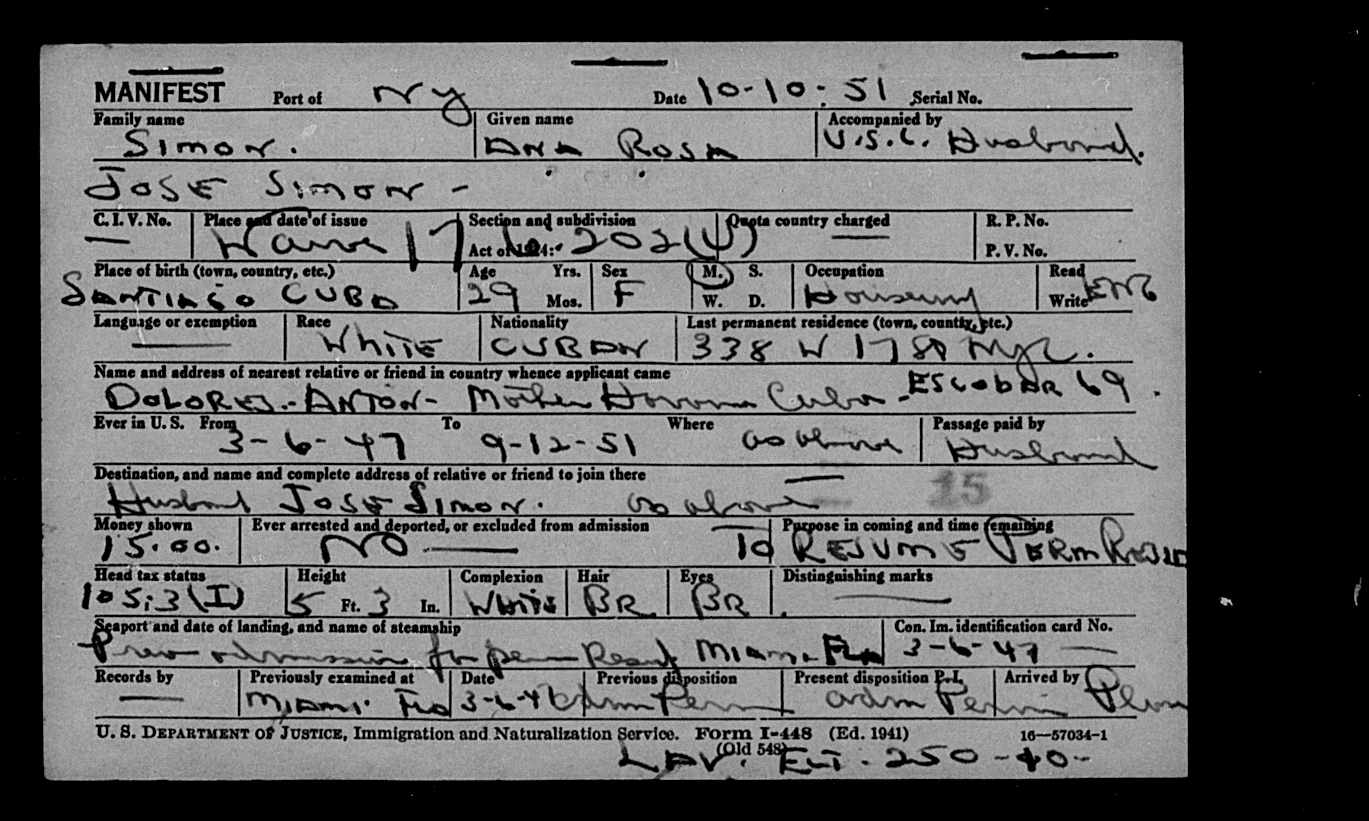 MANIFEST Port of NY Date 10-10-51 Serial No.
Family name Given name Accompanied by
Simon. ANA ROSA U.S.C. Husband.
JOSE SIMON -
C. I. V. No. Place and date of issue Section and subdivision Quota country charged R. P. No.
— 17 Act of 1924: 202(4) — P. V. No.
Place of birth (town, country, etc.) Age Yrs. Sex M. S. Occupation Read
SANTIAGO CUBA 29 Mos. F W. D. Write ENG
Language or exemption Race Nationality Last permanent residence (town, country, etc.)
— WHITE CUBAN 338 W 17 St NYC.
Name and address of nearest relative or friend in country whence applicant came
DOLORES - ANTON - Mother Havana Cuba - ESCOBAR 69.
Ever in U. S. From To Where Passage paid by
3-6-47 9-12-51 as above Husband
Destination, and name and complete address of relative or friend to join there
Husband JOSE SIMON. as above — 15
Money shown Ever arrested and deported, or excluded from admission Purpose in coming and time remaining
15.00. NO — TO RESUME PERM RESID
Head tax status Height Complexion Hair Eyes Distinguishing marks
105.3(I) 5 Ft. 3 In. WHITE BR BR —
Seaport and date of landing, and name of steamship Con. Im. identification card No.
Prev admission for perm Resid Miami Fla 3-6-47 —
Records by Previously examined at Date Previous disposition Present disposition P.I. Arrived by
— MIAMI. Fla 3-6-47 Adm Perm adm Perm Plane
U. S. DEPARTMENT OF JUSTICE, Immigration and Naturalization Service. Form I-448 (Ed. 1941) 16—57034-1
(Old 548)
250-40-